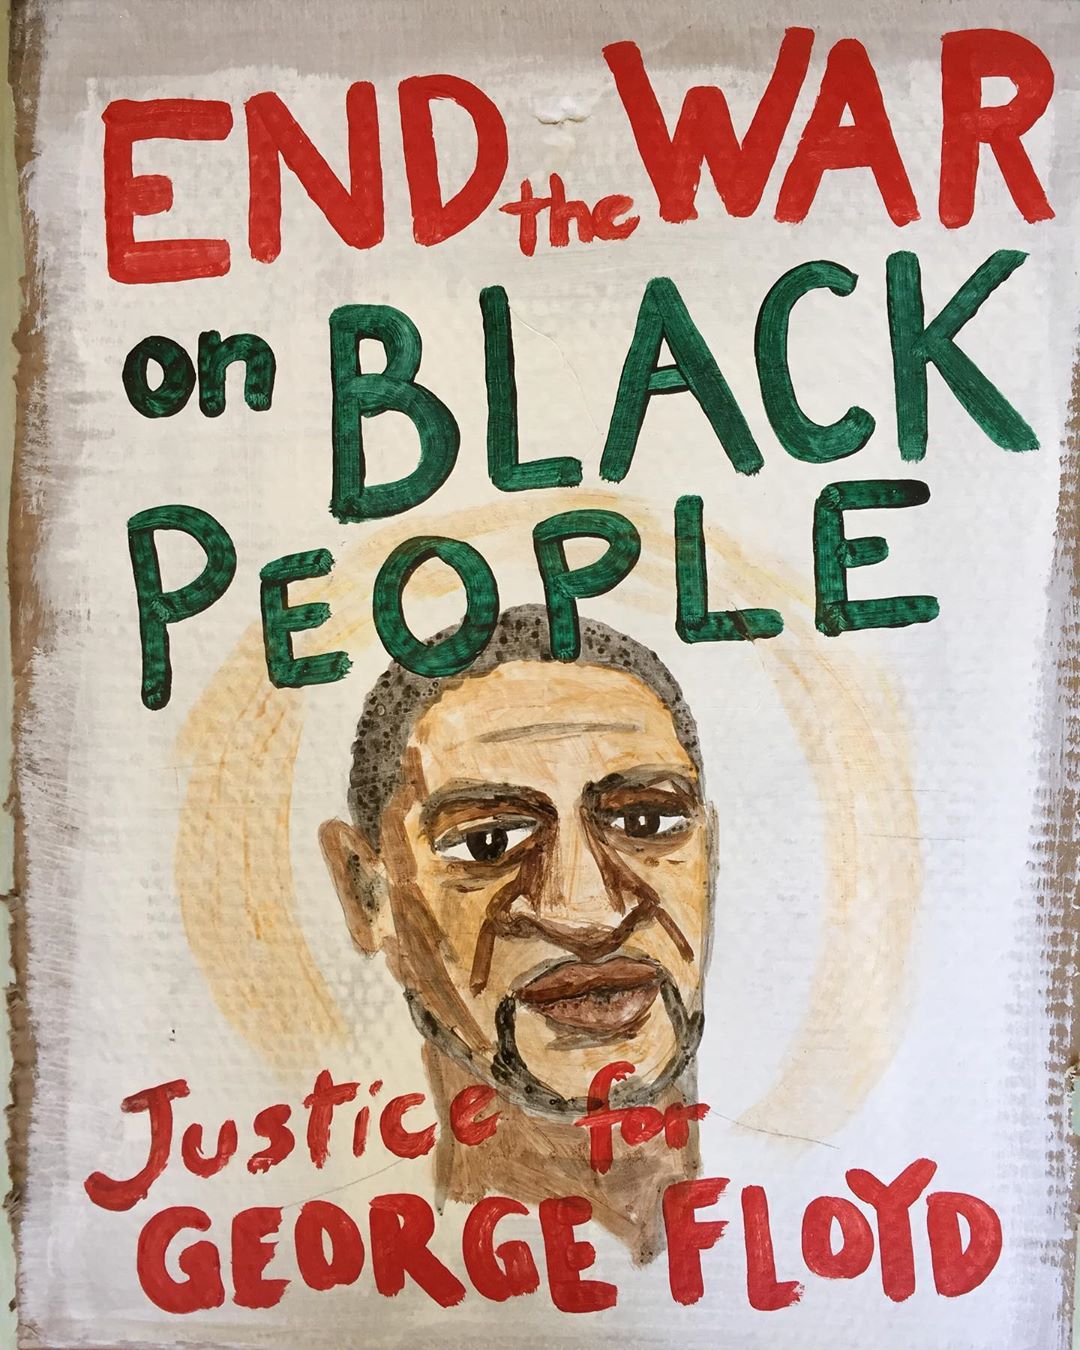 END the WAR
on BLACK
PEOPLE
Justice for
GEORGE FLOYD